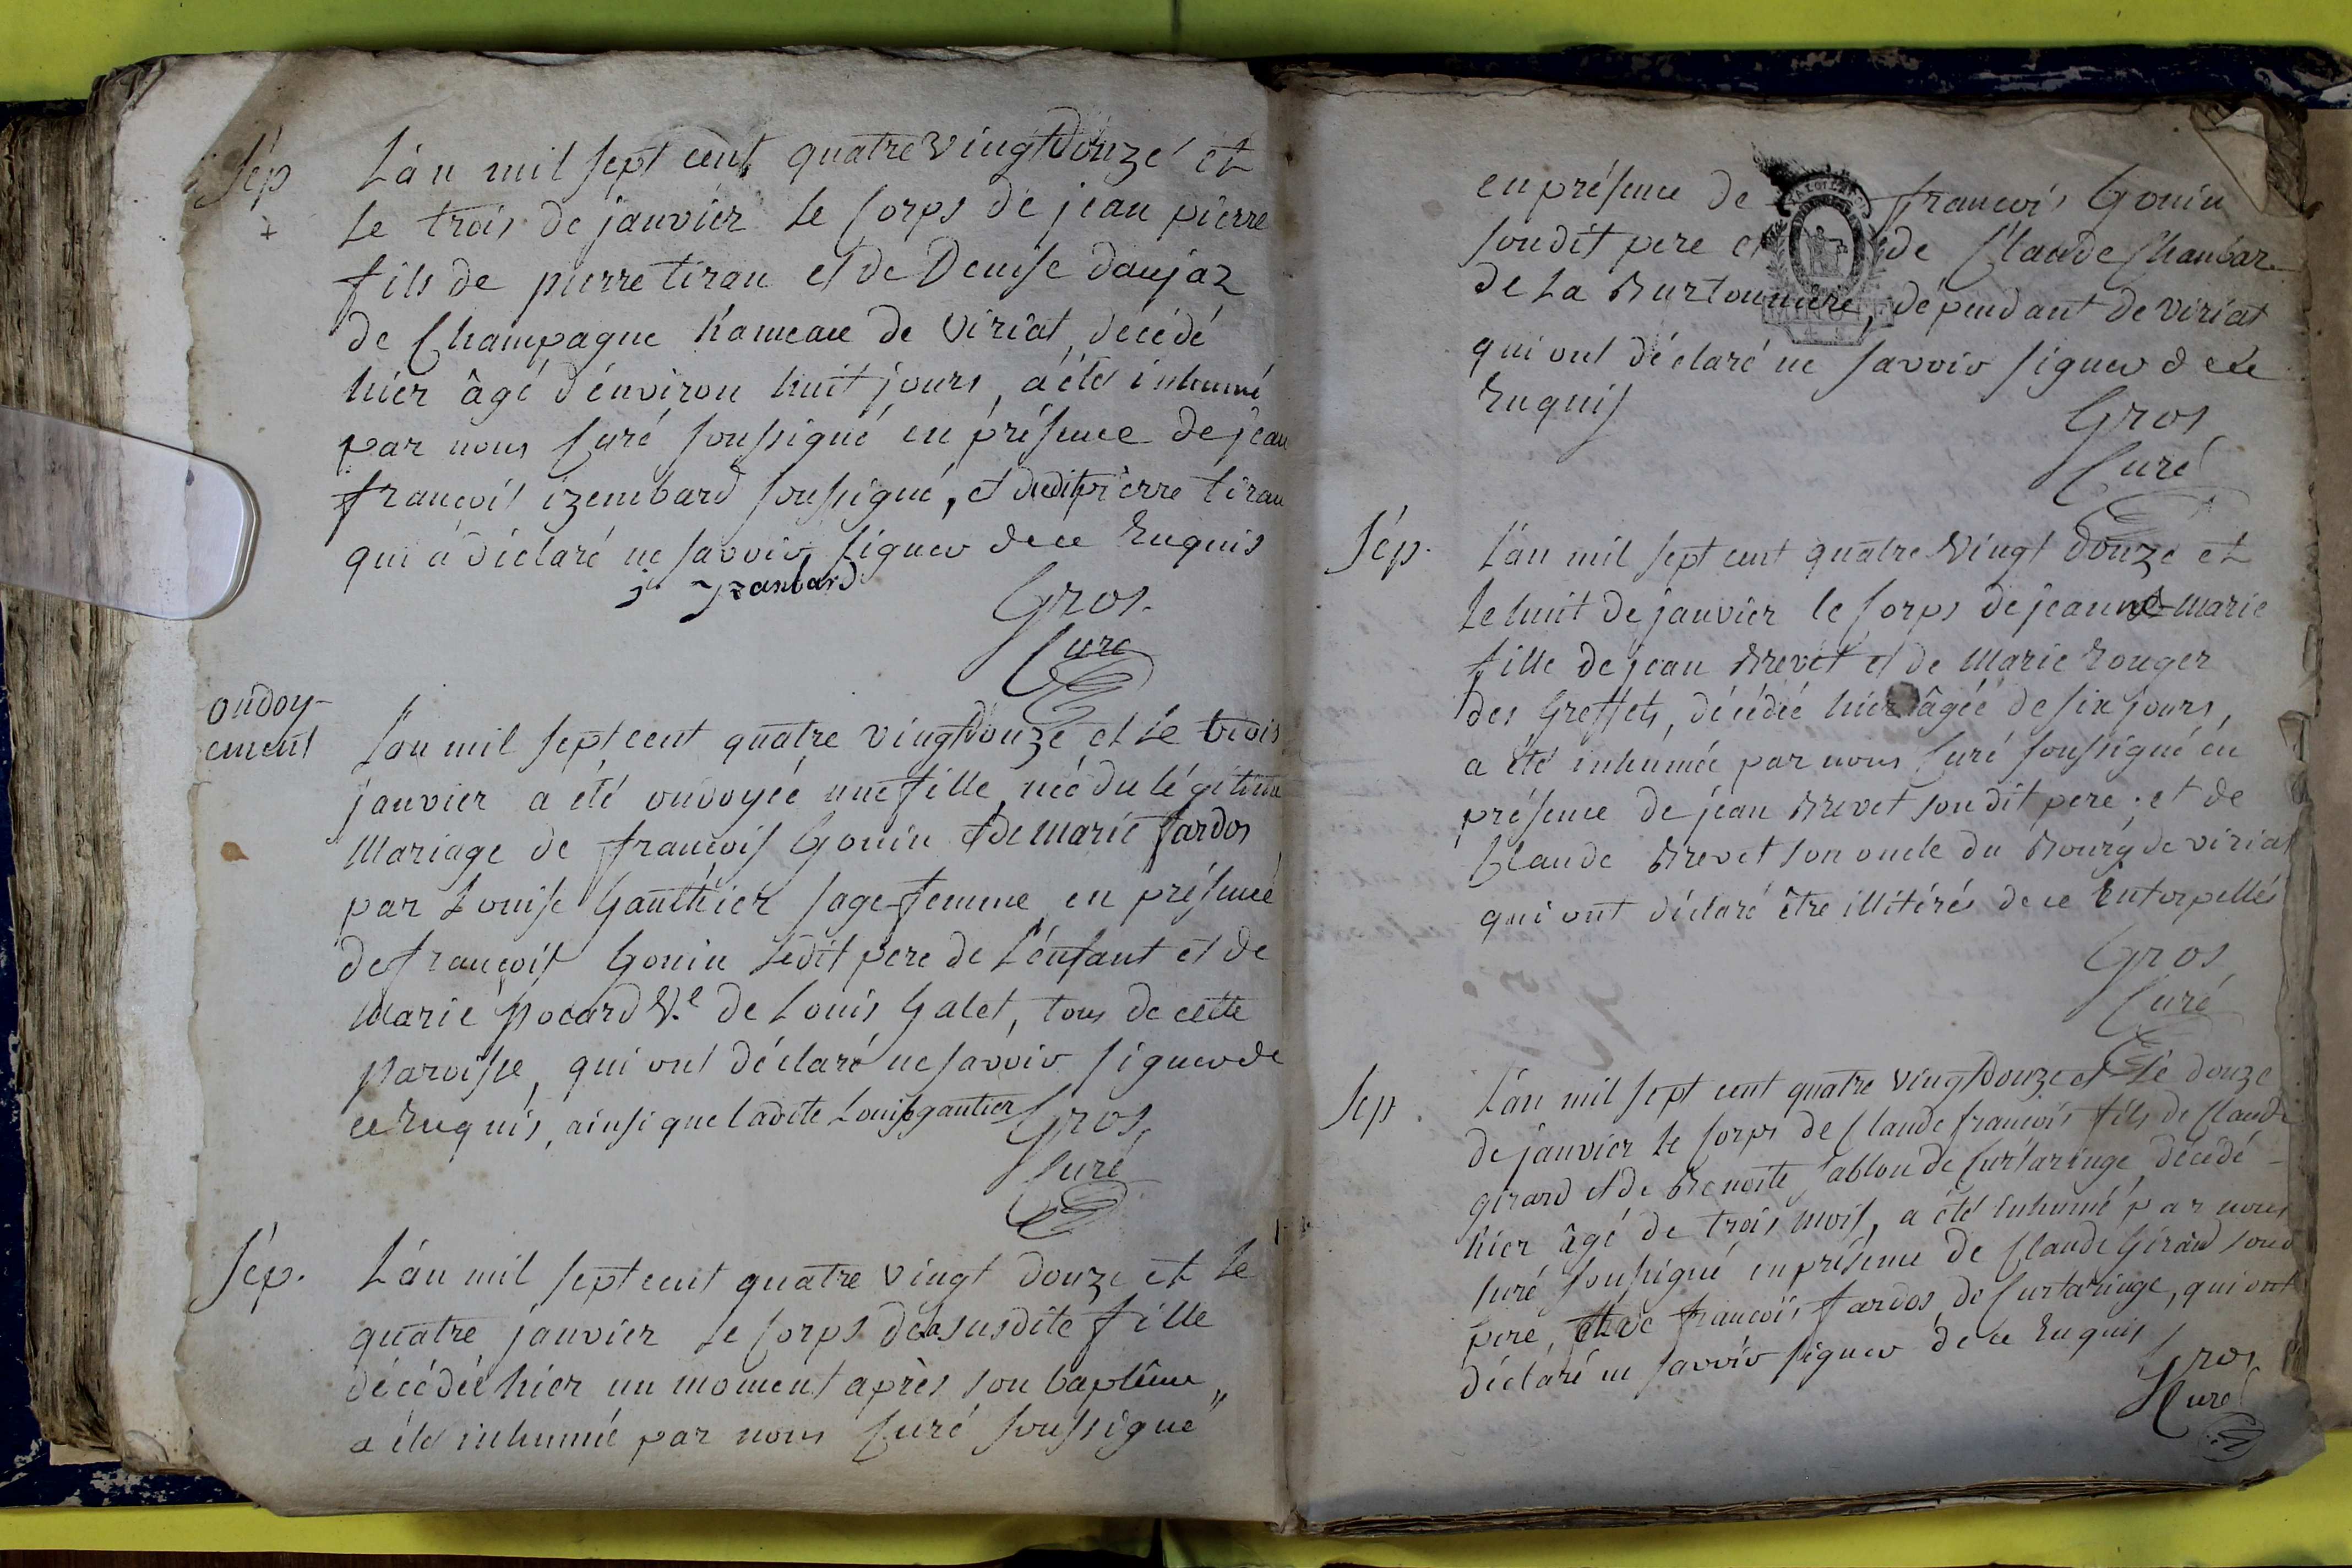 Sép
+
L'an mil sept cent quatre vingt Douze et
le trois de janvier le Corps de jean pierre
fils de pierre tiran et de Denise daujaz
de Champagne hameau de Viriat, décédé
hier âgé d'environ huit jours, a été inhumé
par nous Curé soussigné en présence de jean
françois izembard soussigné, et dudit pierre tiran
qui a déclaré ne savoir signer de ce Enquis
Gros.
Curé
ondoy-
ement
L'an mil sept cent quatre vingt Douze et le trois
janvier a été ondoyée une fille, née du légitime
Mariage de françois Gonin et de marie fardos
par Louise Gauthier sage-femme, en présence
de françois Gonin ledit pere de L'enfant et de
Marie pocard V.e de Louis Galet, tous de cette
paroisse, qui ont déclaré ne savoir signer de
ce Enquis, ainsi que ladite Louise gautier
Gros,
Curé
Sép.
L'an mil sept cent quatre vingt douze et le
quatre janvier le Corps de la susdite fille
décédée hier un moment après son baptême
a été inhumée par nous Curé soussigné
en présence de françois Gonin
sondit pere et de Claude Chanbar
de La Burtonniere, dépendant de viriat
qui ont déclaré ne savoir signer de ce
Enquis
Gros
Curé
Sép.
L'an mil sept cent quatre Vingt Douze et
le huit de janvier le Corps de jeanne-marie
fille de jean Brevet et de Marie Rouger
des Greffets, décédée hier âgée de six jours,
a été inhumée par nous Curé soussigné en
présence de jean Brevet sondit pere; et de
Claude Brevet son oncle du Bourg de viriat
qui ont déclaré être illitérés de ce Enterpellés
Gros
Curé
Sep.
L'an mil sept cent quatre vingt Douze et le douze
de janvier le Corps de Claude françois fils de Claude
girard et de Benoite Tablon de Curtaringe, décédé
hier âgé de trois mois, a été inhumé par nous
Curé soussigné en présence de Claude Girard sond
pere, et de françois fardos de Curtaringe, qui ont
déclaré ne savoir signer de ce Enquis
Gros
Curé